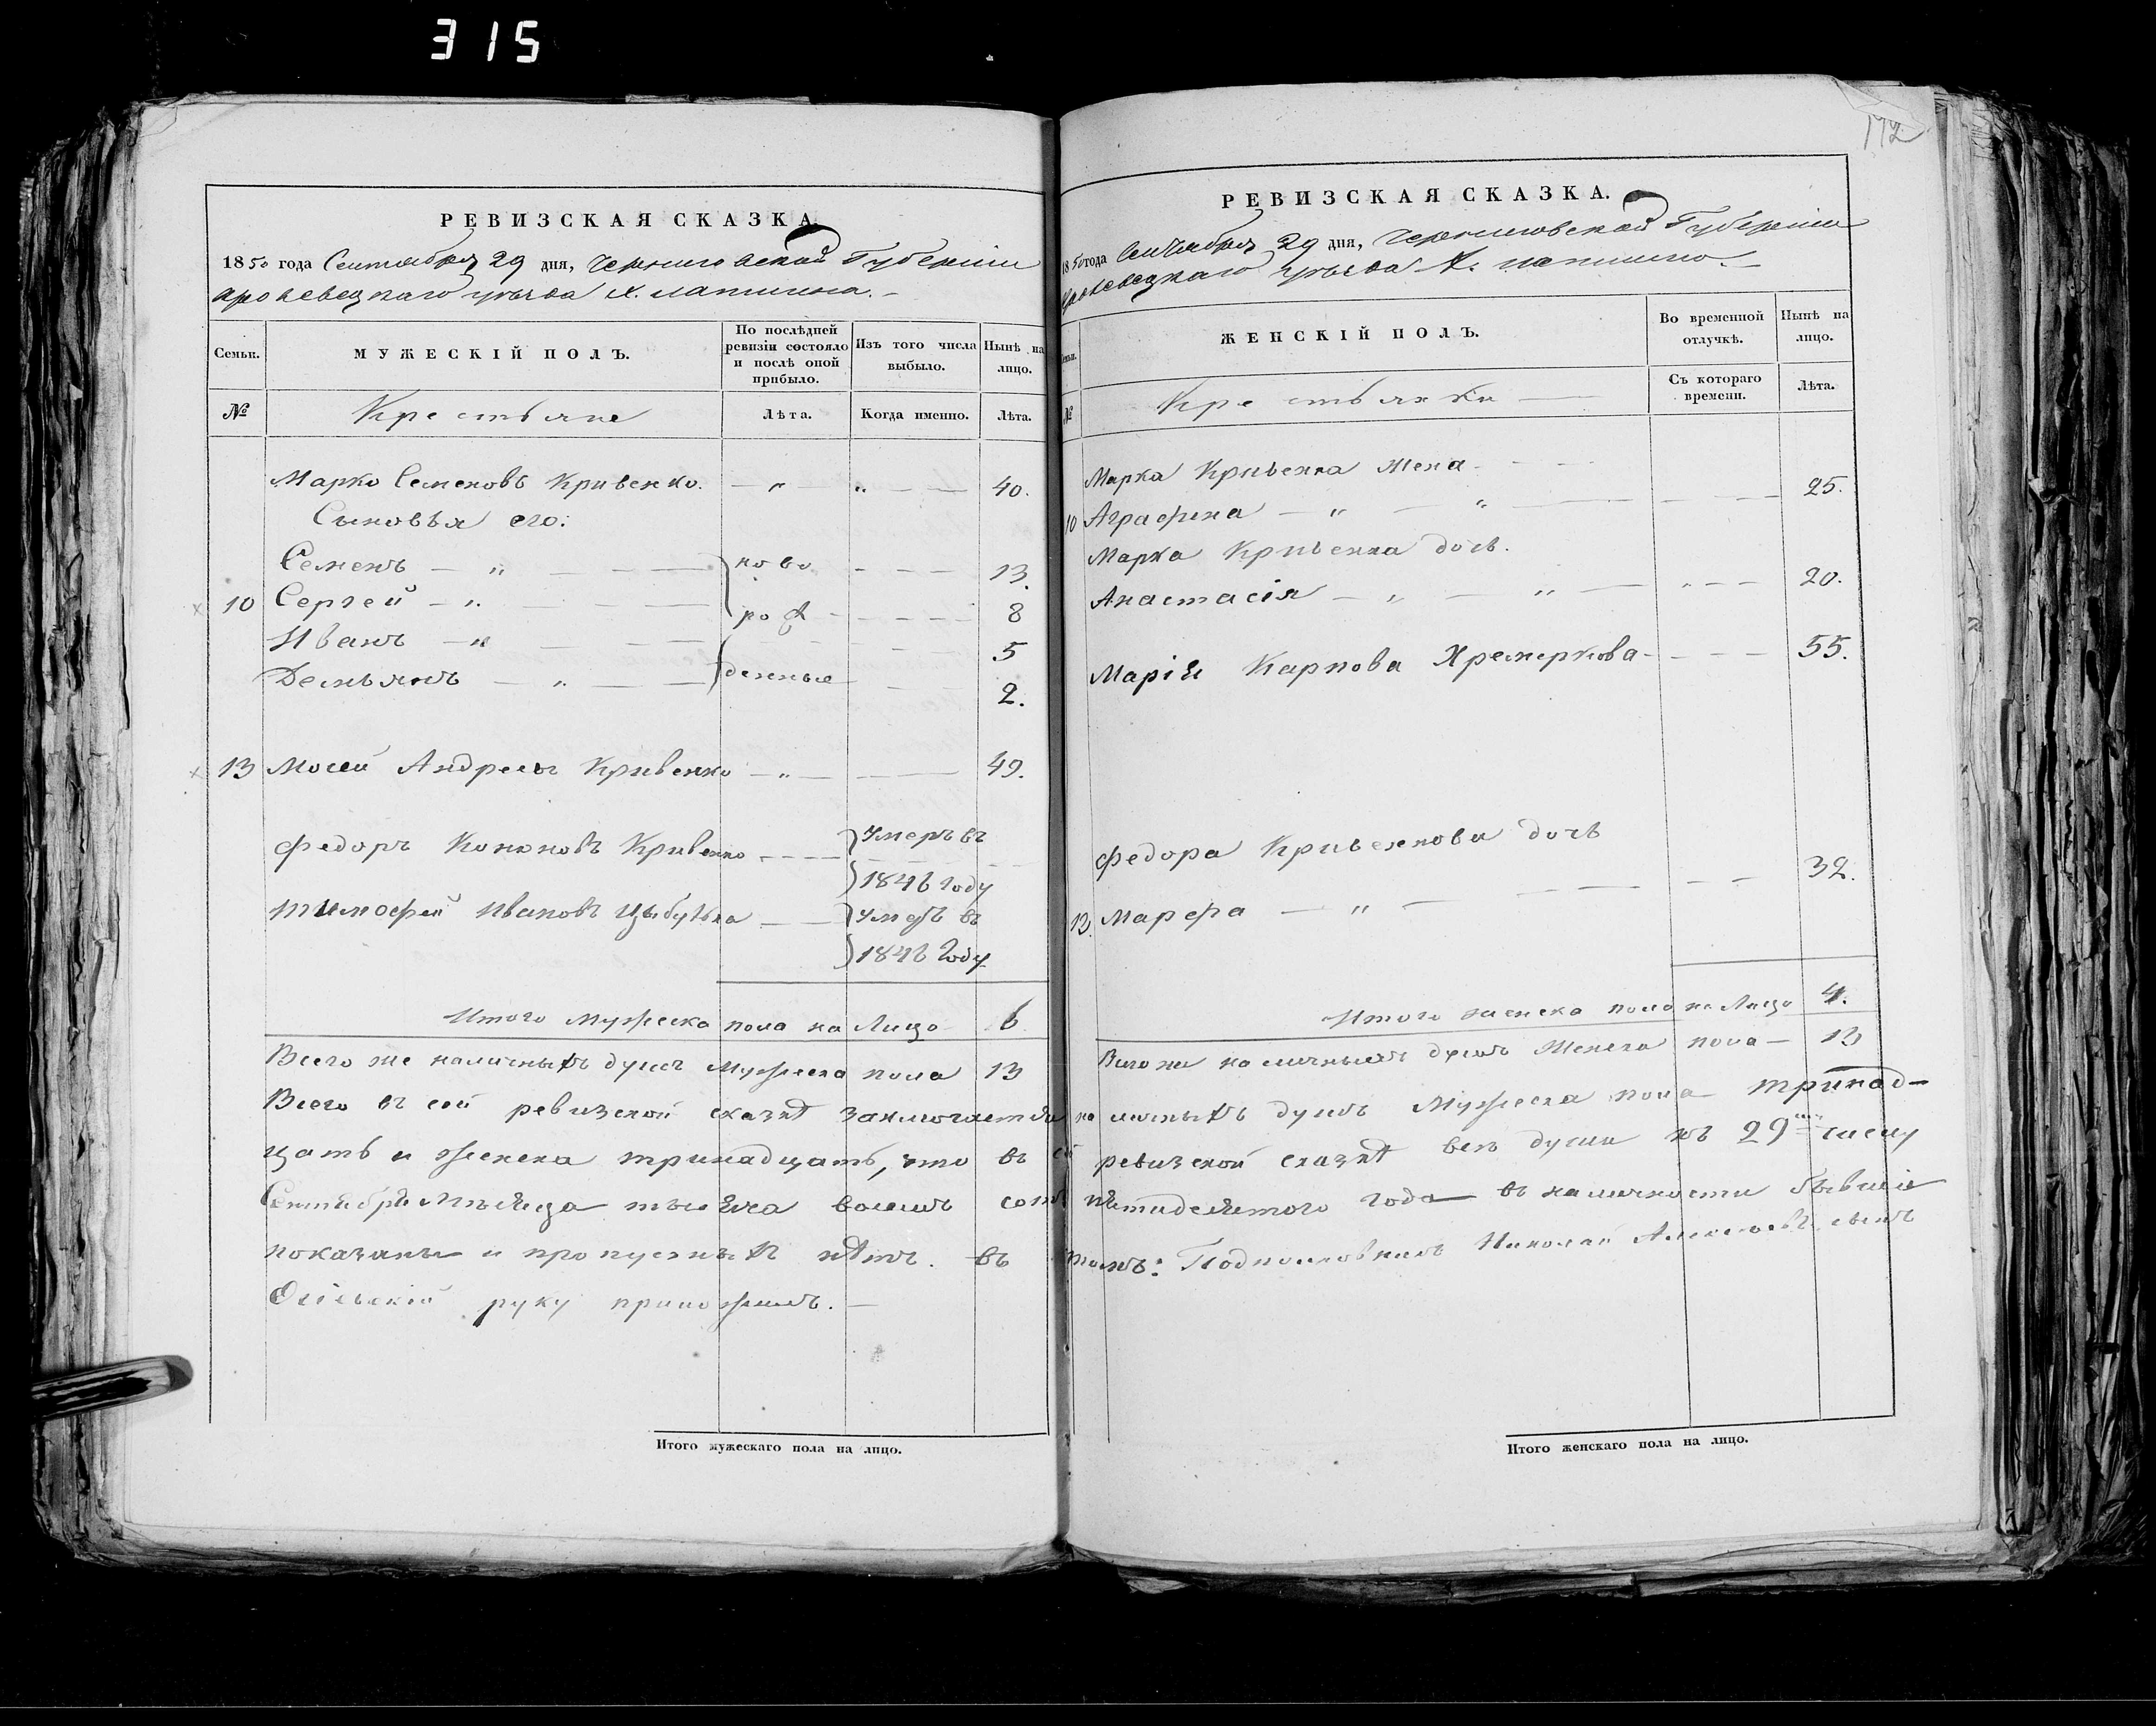 315
РЕВИЗСКАЯ СКАЗКА
1850 года Сентября 29 дня, Черниговской Губерніи
кролевецкаго уѣзда х. лапшина.
Семьи.
МУЖЕСКІЙ ПОЛЪ.
По послѣдней ревизіи состояло и послѣ оной прибыло.
Изъ того числа выбыло.
Нынѣ на лицо.
№
Крестьяне
Лѣта.
Когда именно.
Лѣта.
Марко Семеновъ Кривенко. — „ — „ — — 40.
Сыновья его:
Семенъ — „ — — ново - - - 13.
10 Сергей — „ — — рож - - - 8
Иванъ — „ — — - - - 5
Демьянъ — „ — — денные - - 2.
13 Мосей Андреевъ Кривенко — „ — — 49.
Федоръ Кононовъ Кривенко - - - Умеръ въ
1846 году
Тимофей Ивановъ Цыбулька — — Умеръ въ
1846 Году
Итого мужеска пола на Лицо 6
Всего же наличныхъ душъ Мужеска пола 13
Всего въ сей ревизской сказкѣ заключается
цать и женска тринадцать, что въ сей
Сентября Мѣсяца тысяча восемь сотъ
показаны и пропускныхъ нѣтъ. въ
руку приложилъ. —
Итого мужескаго пола на лицо.
172
РЕВИЗСКАЯ СКАЗКА.
1850 года Сентября 29 дня, Черниговской Губерніи
кролевецкаго уѣзда х. лапшина. —
Семьи.
ЖЕНСКІЙ ПОЛЪ.
Во временной отлучкѣ.
Нынѣ на лицо.
№
Крестьянки —
Съ котораго времени.
Лѣта.
Марка Кривенка Жена - - -
10 Аграфена — „ — „ — — — 25.
Марка Кривенка дочь.
Анастасія — „ — „ — „ — — 20.
Марія Карпова - - - 55.
Федора Кривенкова дочь
13. Марфа — „ — — — — 32.
Итого женска пола на Лицо 4.
Всего же наличныхъ душъ Женска пола — 13
наличныхъ душъ Мужеска пола тринад-
ревизской сказкѣ всѣ души къ 29 числу
пятидесятого года въ наличности бывшіе
томъ: Подполковникъ Николай Алексѣевъ сынъ
Итого женскаго пола на лицо.